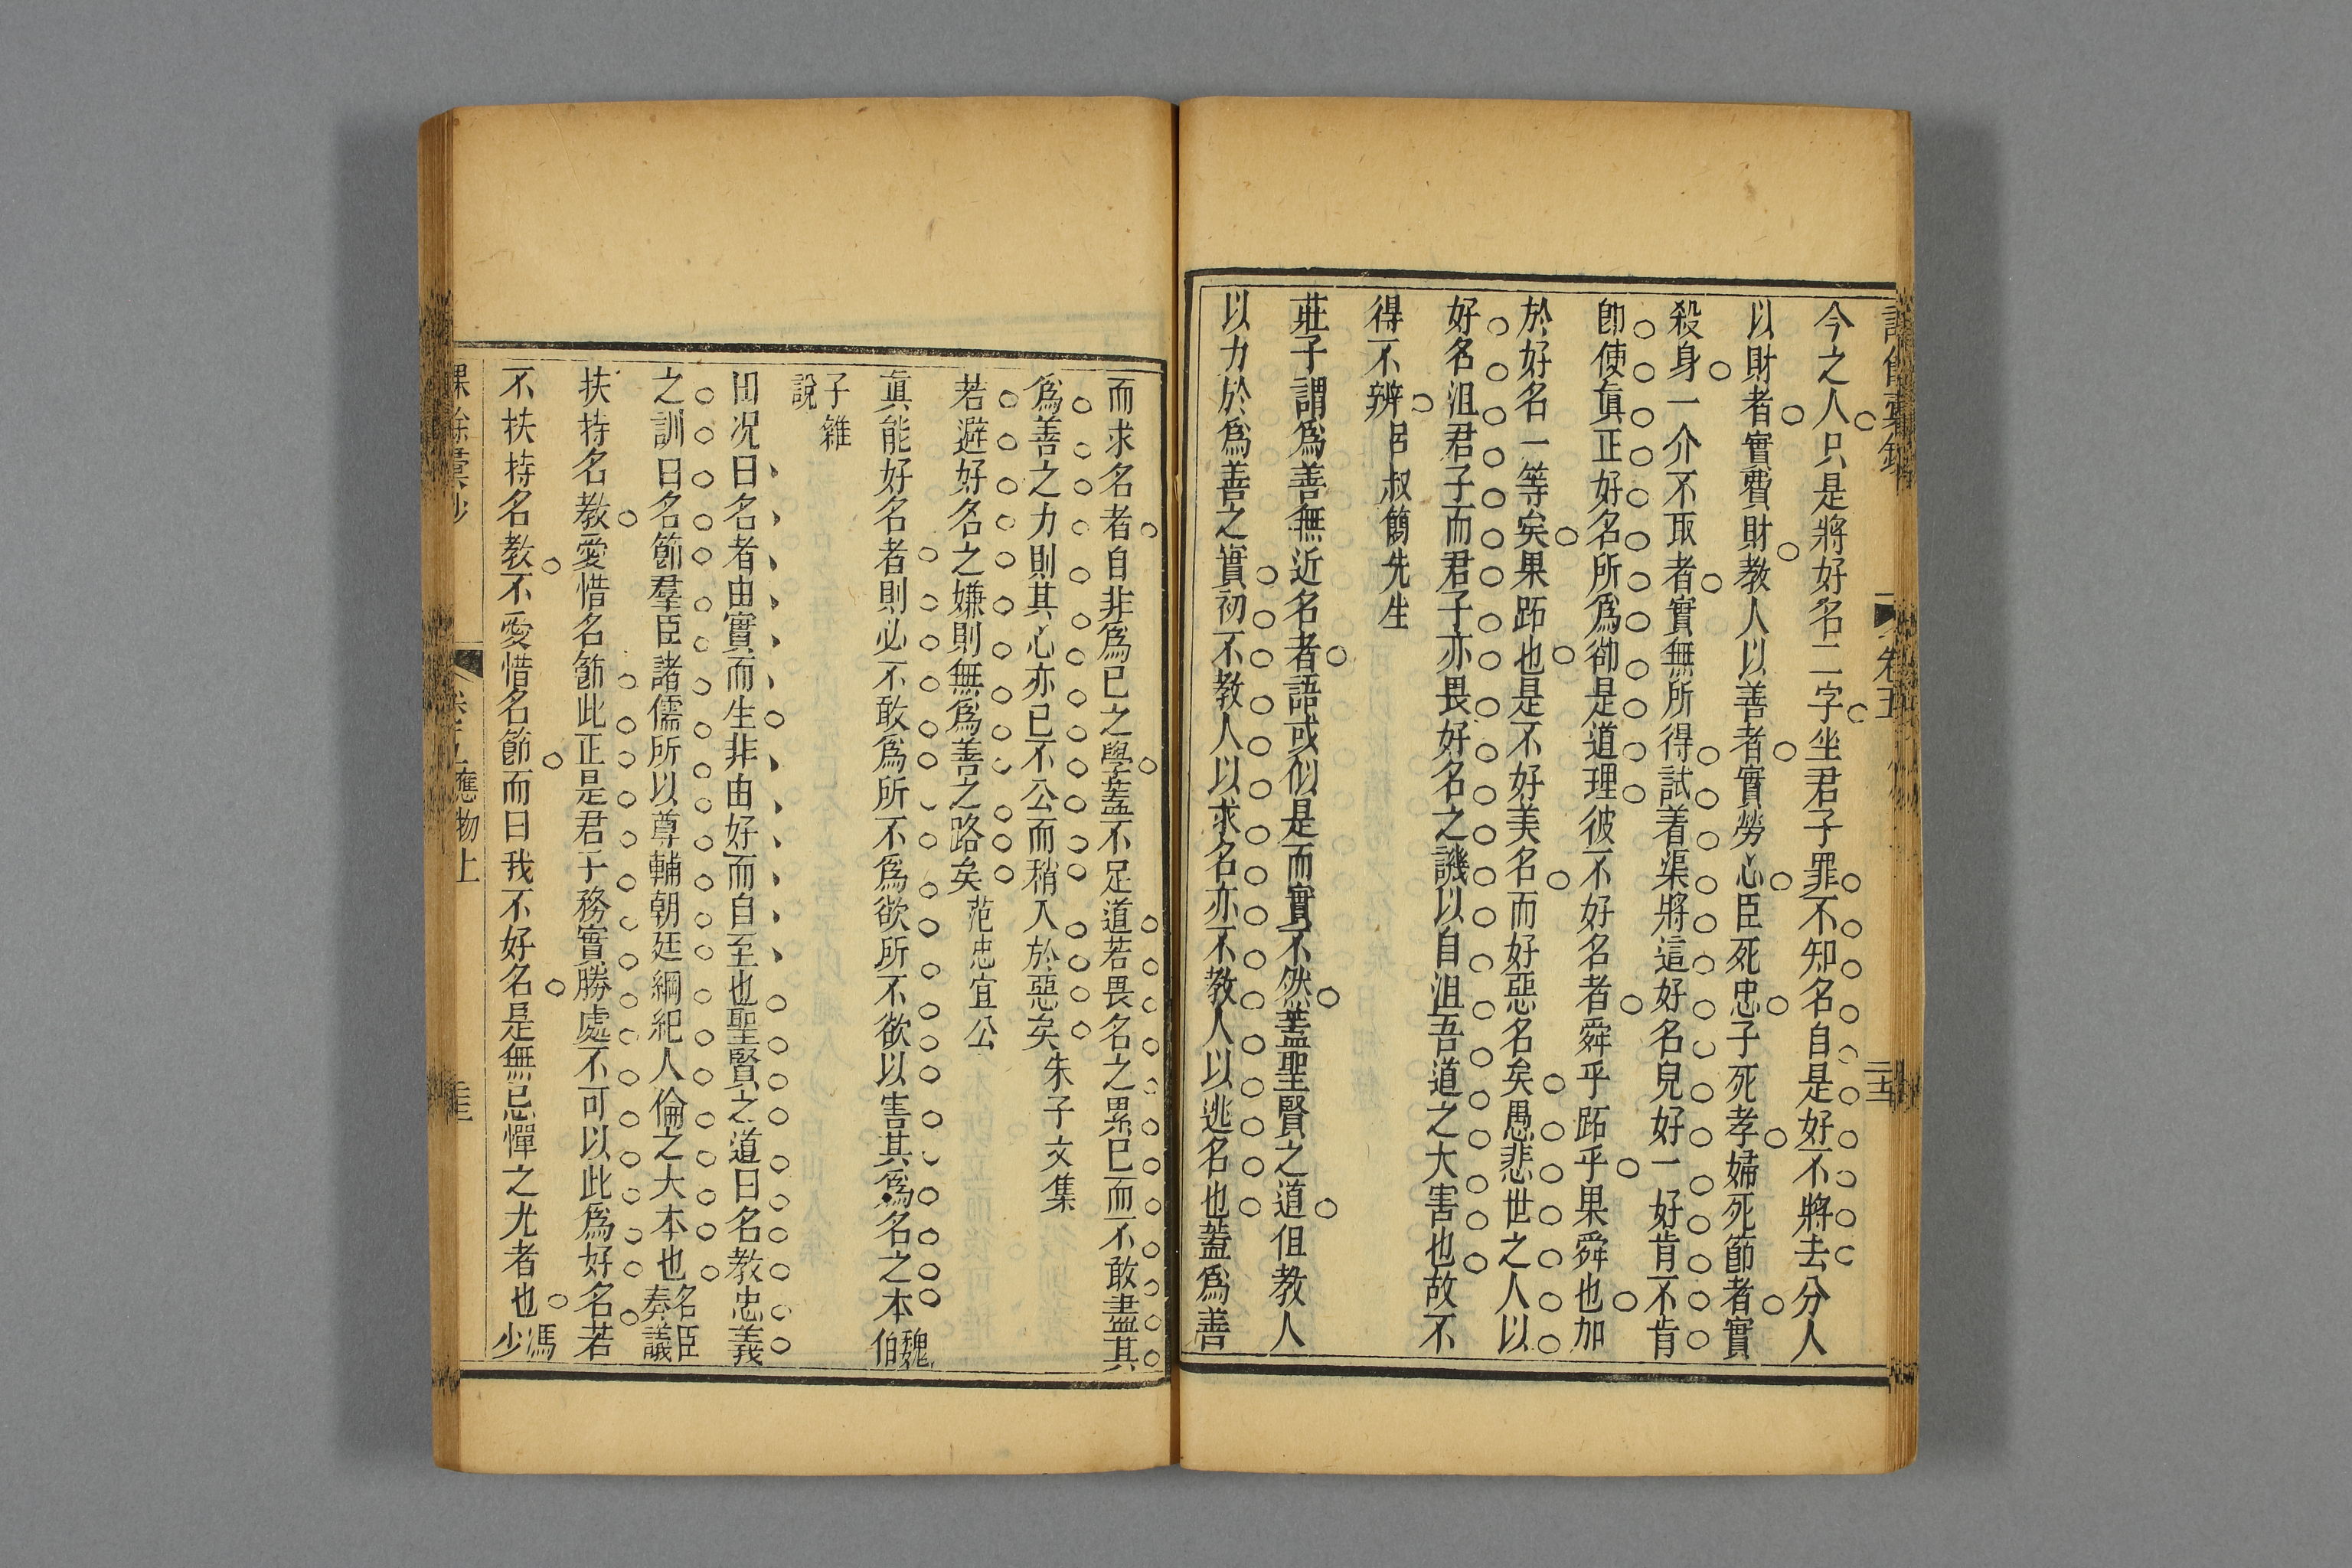 今之人只是將好名二字坐君子罪不知名自是好不將去分人
以財者實費財教人以善者實勞心臣死忠子死孝婦死節者實
殺身一介不取者實無所得試着渠將這好名兒好一好肯不肯
卽使眞正好名所爲卻是道理彼不好名者舜乎跖乎果舜也加
於好名一等矣果跖也是不好美名而好惡名矣愚悲世之人以
好名沮君子而君子亦畏好名之譏以自沮吾道之大害也故不
得不辨 呂叔簡先生
莊子謂爲善無近名者語或似是而實不然蓋聖賢之道但教人
以力於爲善之實初不教人以求名亦不教人以逃名也蓋爲善
而求名者自非爲已之學蓋不足道若畏名之累已而不敢盡其
爲善之力則其心亦已不公而稍入於惡矣 朱子文集
若避好名之嫌則無爲善之路矣 范忠宣公
眞能好名者則必不敢爲所不爲欲所不欲以害其爲名之本 魏伯
子雜說
田况曰名者由實而生非由好而自至也聖賢之道曰名教忠義
之訓曰名節羣臣諸儒所以尊輔朝廷綱紀人倫之大本也 名臣奏議
扶持名教愛惜名節此正是君子務實勝處不可以此爲好名若
不扶持名教不愛惜名節而曰我不好名是無忌憚之尤者也 馮少
課餘彙鈔 卷五 應物上